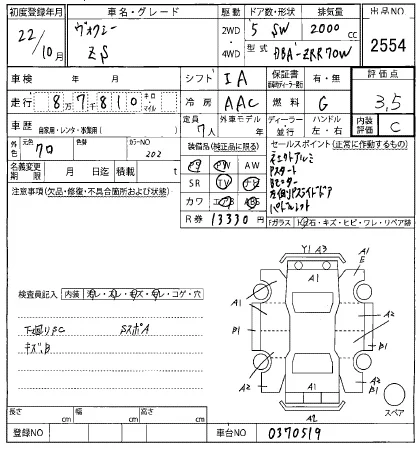 初度登録年月 車名・グレード 駆動 ドア数・形状 排気量 出品NO
22/10月 ヴォクシー ZS 2WD・4WD 5 SW 2000 cc 2554
型式 DBA-ZRR70W
車検 年 月 シフト IA 保証書 有・無 評価点
走行 87810 キロ マイル 冷房 AAC 燃料 G 3,5
車歴 自家用・レンタ・事業用( ) 定員 7人 外車モデル 年 ディーラー 並行 ハンドル 左・右 内装評価 C
外色 クロ 色替 カラーNO 202 装備品(純正品に限る) セールスポイント(正常に作動するもの)
PS PW AW
SR TV ナビ
カワ エアB ABS
名義変更期限 月 日迄 積載 t
R券 13330 円
注意事項(欠品・修復・不具合箇所および状態)
Pスタート
Bモニター
左側パワスライドドア
Fガラス 飛石・キズ・ヒビ・ワレ・リペア跡
検査員記入 内装 汚レ・スレ・キズ・ヤレ・コゲ・穴
下廻りサC SスポA
キズ、B
Y1 A3 A1 E
A1
A1 A2
B1 A1
A2 A2 B1
A1 A1
A2
スペア
長さ cm 幅 cm 高さ cm
登録NO 車台NO 0370519